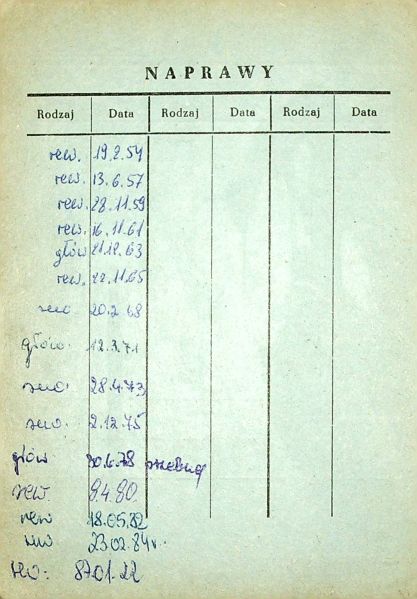 NAPRAWY
Rodzaj Data Rodzaj Data Rodzaj Data
rew. 19.2.54
rew. 13.6.57
rew. 28.11.59
rew. 16.11.61
głów 21.12.63
rew. 22.11.65
20.2.68
głów. 12.3.71
28.4.73
2.12.75
głów 30.6.78
rew. 9.4.80.
rew 18.05.82
23.02.84r.
87.01.22